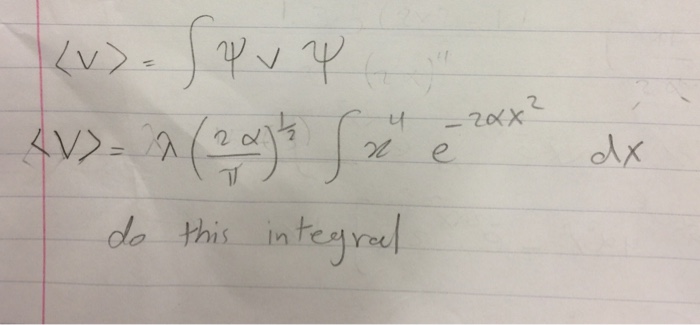 ⟨V⟩ = ∫ ψ v ψ
⟨V⟩ = λ (2α/π)^{1/2} ∫ x^4 e^{-2αx^2} dx
do this integral